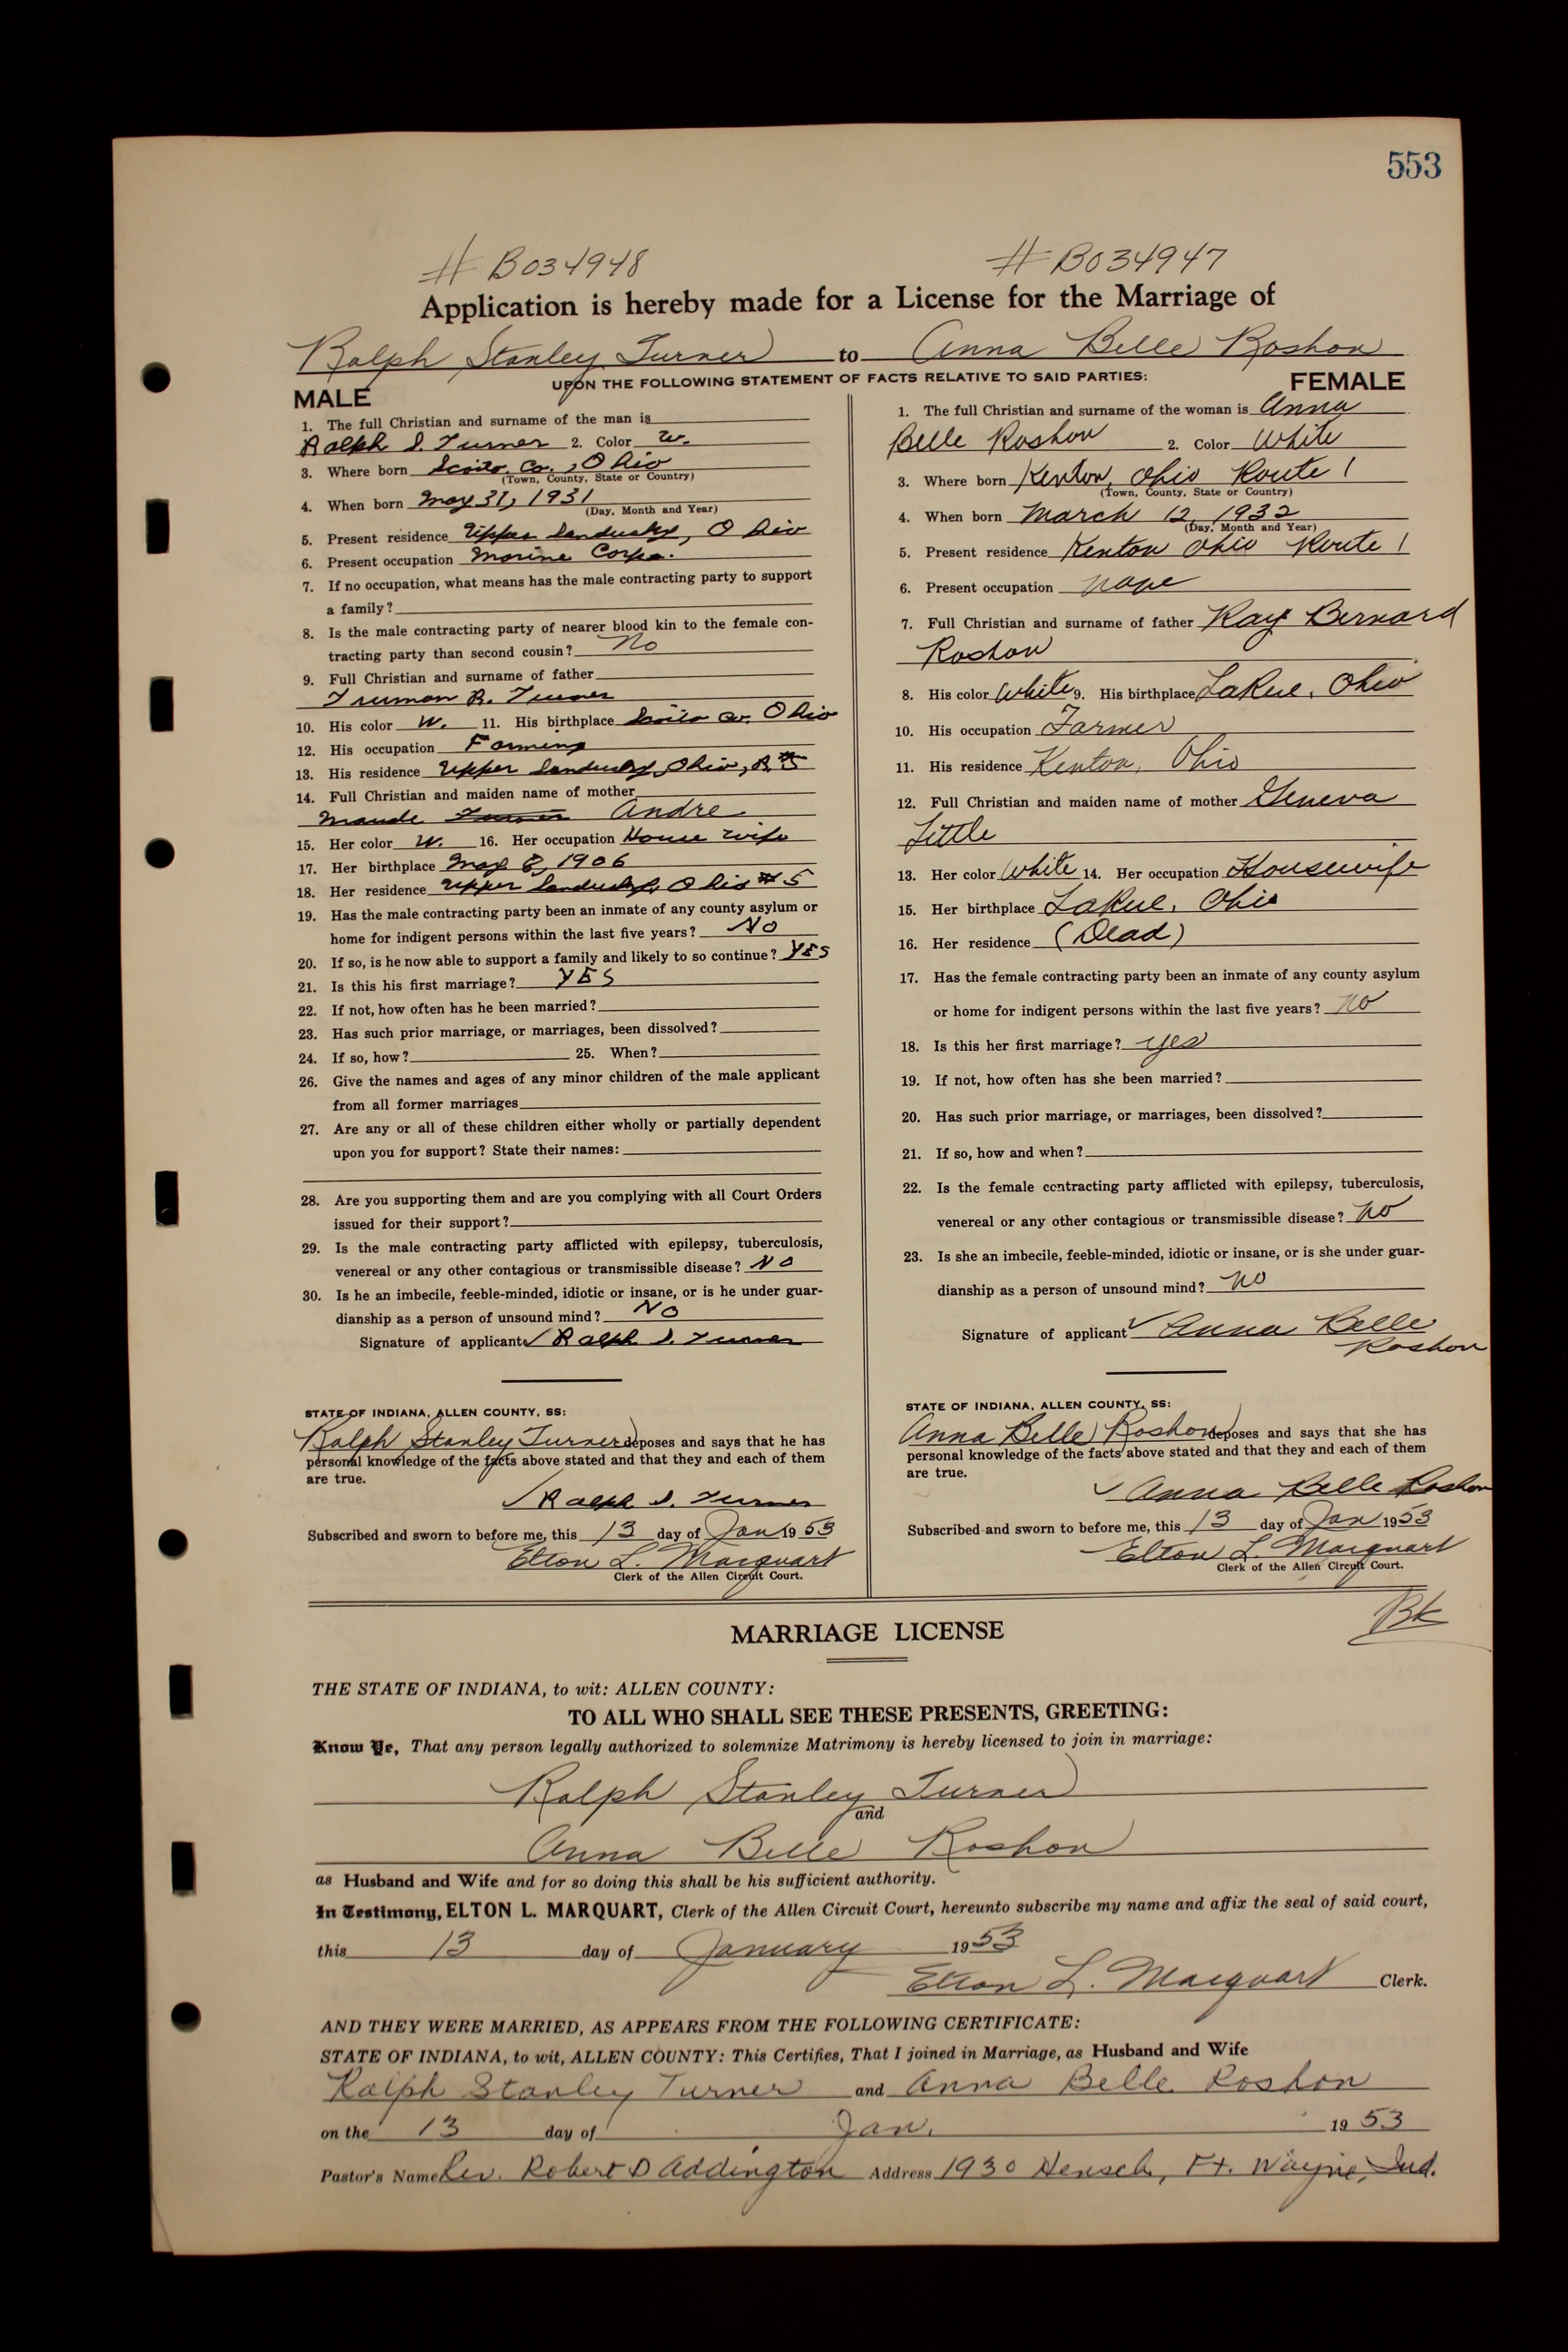 553
# B034948
# B034947
Application is hereby made for a License for the Marriage of
Ralph Stanley Turner to Anna Belle Roshon
UPON THE FOLLOWING STATEMENT OF FACTS RELATIVE TO SAID PARTIES:
MALE
1. The full Christian and surname of the man is
Ralph S. Turner 2. Color W.
3. Where born Scoito Co., Ohio
(Town, County, State or Country)
4. When born May 31, 1931
(Day, Month and Year)
5. Present residence Upper Sandusky, Ohio
6. Present occupation Marine Corps.
7. If no occupation, what means has the male contracting party to support
a family?
8. Is the male contracting party of nearer blood kin to the female con-
tracting party than second cousin? No
9. Full Christian and surname of father
Truman R. Turner
10. His color W. 11. His birthplace Scoito Co. Ohio
12. His occupation Farming
13. His residence Upper Sandusky, Ohio, R #5
14. Full Christian and maiden name of mother
Maude Turner Andre
15. Her color W. 16. Her occupation House wife
17. Her birthplace May 8, 1906
18. Her residence Upper Sandusky, Ohio #5
19. Has the male contracting party been an inmate of any county asylum or
home for indigent persons within the last five years? NO
20. If so, is he now able to support a family and likely to so continue? YES
21. Is this his first marriage? YES
22. If not, how often has he been married?
23. Has such prior marriage, or marriages, been dissolved?
24. If so, how? 25. When?
26. Give the names and ages of any minor children of the male applicant
from all former marriages
27. Are any or all of these children either wholly or partially dependent
upon you for support? State their names:
28. Are you supporting them and are you complying with all Court Orders
issued for their support?
29. Is the male contracting party afflicted with epilepsy, tuberculosis,
venereal or any other contagious or transmissible disease? NO
30. Is he an imbecile, feeble-minded, idiotic or insane, or is he under guar-
dianship as a person of unsound mind? NO
Signature of applicant ✓ Ralph S. Turner
STATE OF INDIANA, ALLEN COUNTY, SS:
Ralph Stanley Turner deposes and says that he has
personal knowledge of the facts above stated and that they and each of them
are true.
✓ Ralph S. Turner
Subscribed and sworn to before me, this 13 day of Jan 1953
Elton L. Marquart
Clerk of the Allen Circuit Court.
FEMALE
1. The full Christian and surname of the woman is Anna
Belle Roshon 2. Color White
3. Where born Kenton, Ohio Route 1
(Town, County, State or Country)
4. When born March 12, 1932
(Day, Month and Year)
5. Present residence Kenton Ohio Route 1
6. Present occupation none
7. Full Christian and surname of father Ray Bernard
Roshon
8. His color White 9. His birthplace LaRue, Ohio
10. His occupation Farmer
11. His residence Kenton, Ohio
12. Full Christian and maiden name of mother Geneva
Little
13. Her color White 14. Her occupation Housewife
15. Her birthplace LaRue, Ohio
16. Her residence (Dead)
17. Has the female contracting party been an inmate of any county asylum
or home for indigent persons within the last five years? no
18. Is this her first marriage? yes
19. If not, how often has she been married?
20. Has such prior marriage, or marriages, been dissolved?
21. If so, how and when?
22. Is the female contracting party afflicted with epilepsy, tuberculosis,
venereal or any other contagious or transmissible disease? no
23. Is she an imbecile, feeble-minded, idiotic or insane, or is she under guar-
dianship as a person of unsound mind? no
Signature of applicant ✓ Anna Belle
Roshon
STATE OF INDIANA, ALLEN COUNTY, SS:
Anna Belle Roshon deposes and says that she has
personal knowledge of the facts above stated and that they and each of them
are true.
✓ Anna Belle Roshon
Subscribed and sworn to before me, this 13 day of Jan 1953
Elton L. Marquart
Clerk of the Allen Circuit Court.
Bk
MARRIAGE LICENSE
THE STATE OF INDIANA, to wit: ALLEN COUNTY:
TO ALL WHO SHALL SEE THESE PRESENTS, GREETING:
Know Ye, That any person legally authorized to solemnize Matrimony is hereby licensed to join in marriage:
Ralph Stanley Turner
and
Anna Belle Roshon
as Husband and Wife and for so doing this shall be his sufficient authority.
In Testimony, ELTON L. MARQUART, Clerk of the Allen Circuit Court, hereunto subscribe my name and affix the seal of said court,
this 13 day of January 1953
Elton L. Marquart Clerk.
AND THEY WERE MARRIED, AS APPEARS FROM THE FOLLOWING CERTIFICATE:
STATE OF INDIANA, to wit, ALLEN COUNTY: This Certifies, That I joined in Marriage, as Husband and Wife
Ralph Stanley Turner and Anna Belle Roshon
on the 13 day of Jan. 1953
Pastor's Name Rev. Robert D Addington Address 1930 Hensch, Ft. Wayne, Ind.